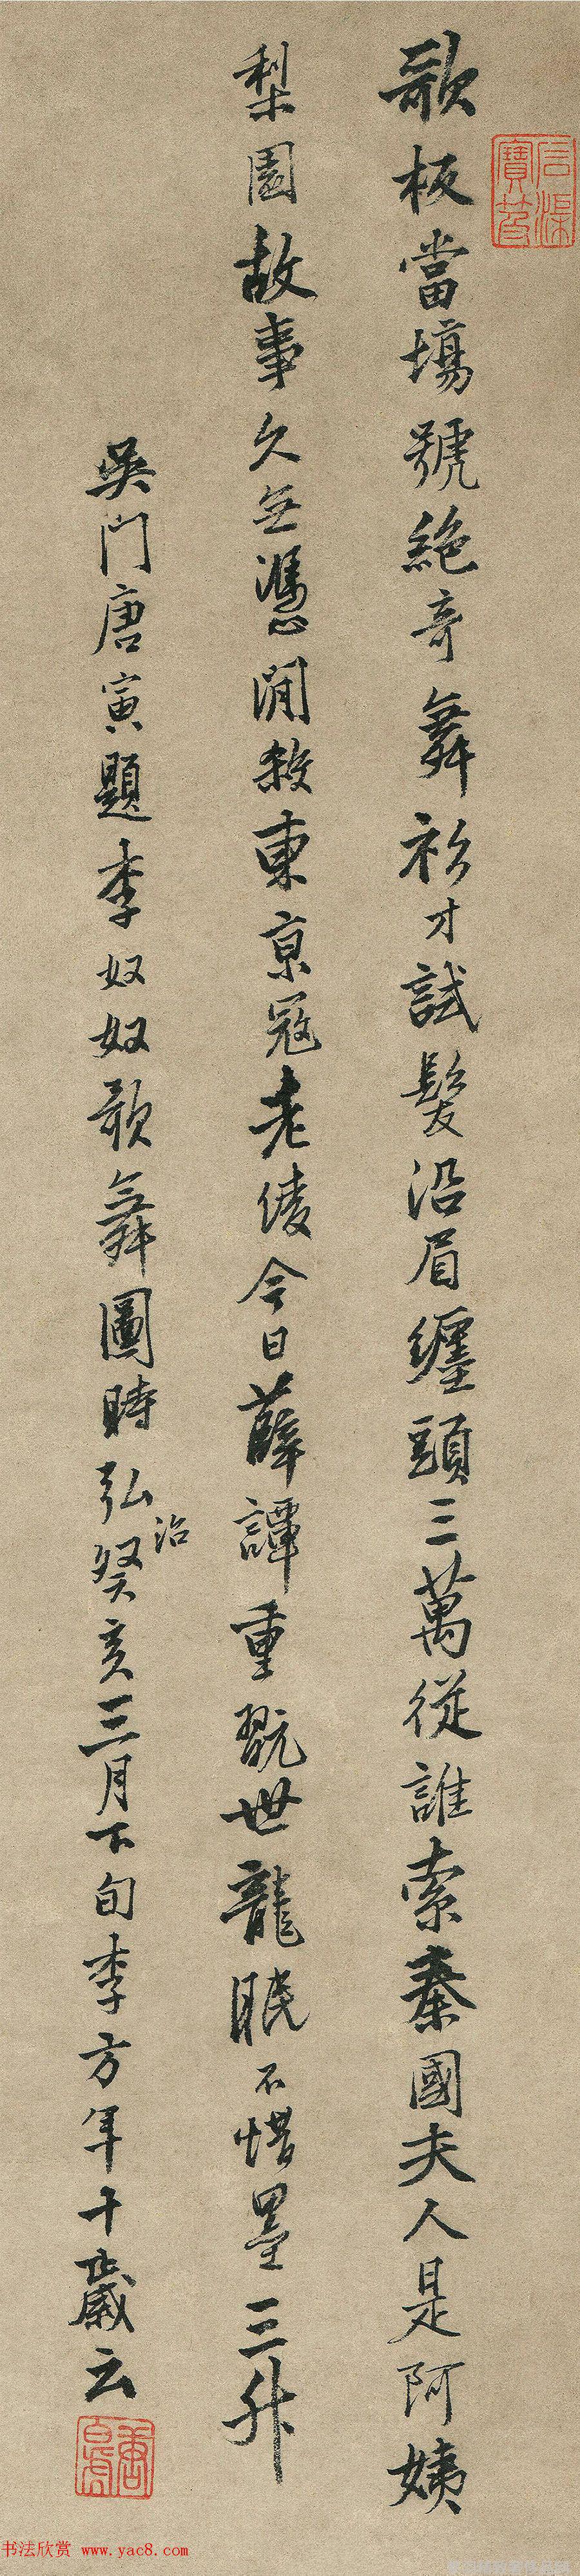 歌板當塲號絶奇舞衫才試髮沿眉纏頭三萬從誰索秦國夫人是阿姨
梨園故事久無憑閒殺東京冠老倰今日薛譚重翫世龍眠不惜墨三升
吳門唐寅題李奴奴歌舞圖時弘治癸亥三月下旬李方年十歲云
唐白虎
书法欣赏 www.yac8.com